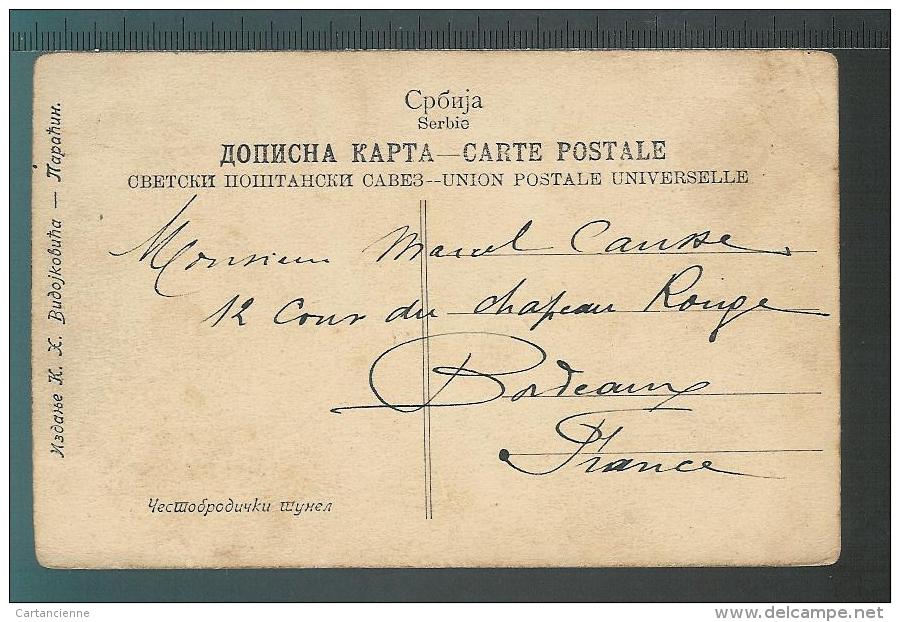 Србија
Serbie
ДОПИСНА КАРТА—CARTE POSTALE
СВЕТСКИ ПОШТАНСКИ САВЕЗ--UNION POSTALE UNIVERSELLE
Monsieur Marcel Causse
12 Cours du Chapeau Rouge
Bordeaux
France
Честобродички тунел
Издање К. Х. Видојковића — Параћин.
Cartancienne
delcampe.net